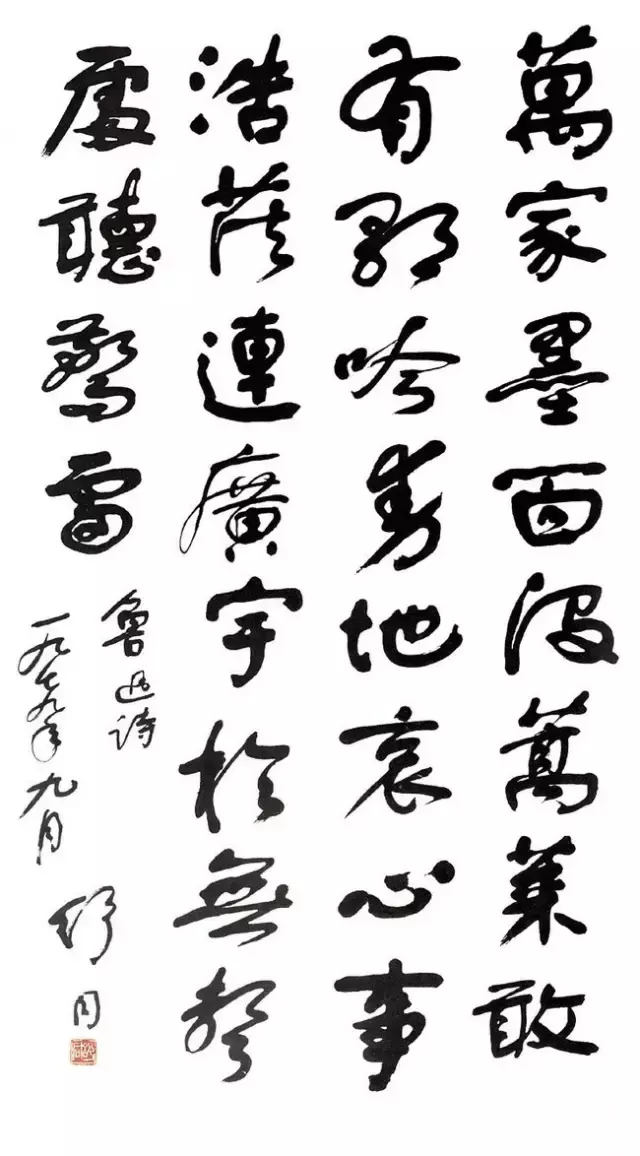 萬家墨面没蒿萊敢
有歌吟動地哀心事
浩茫連廣宇於無聲
處聽驚雷
魯迅詩
一九七九年九月
舒同